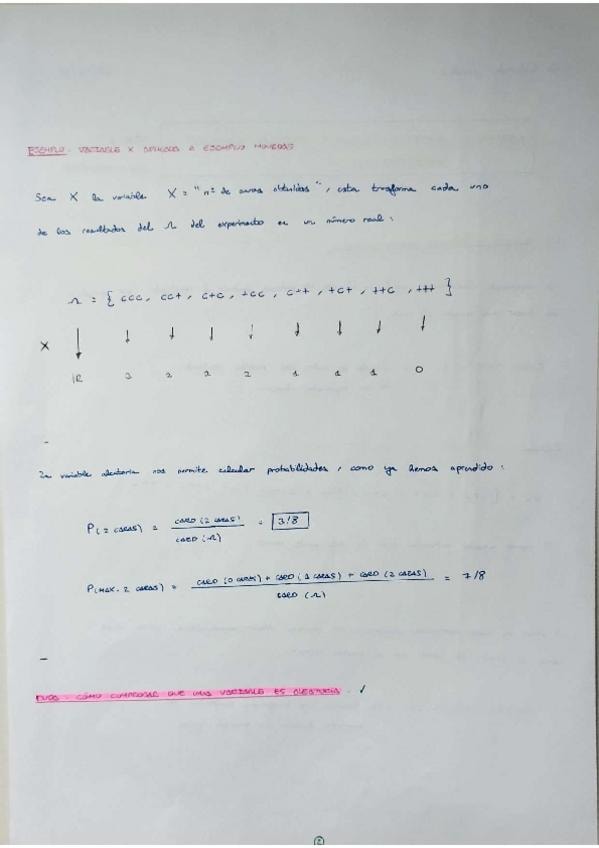 EJEMPLO. VARIABLE X APLICADA A EJEMPLO MONEDAS
Sea X la variable X = "nº de caras obtenidas", esta trasforma cada uno
de los resultados del Ω del experimento en un número real:
Ω = { CCC, CC+, C+C, +CC, C++, +C+, ++C, +++ }
X
IR 3 2 2 2 1 1 1 0
La variable aleatoria nos permite calcular probabilidades, como ya hemos aprendido:
P(2 CARAS) = CARD (2 CARAS) / CARD (Ω) = 3/8
P(MAX. 2 CARAS) = CARD (0 CARAS) + CARD (1 CARAS) + CARD (2 CARAS) / CARD (Ω) = 7/8
CÓMO COMPROBAR QUE UNA VARIABLE ES ALEATORIA. ✓
2